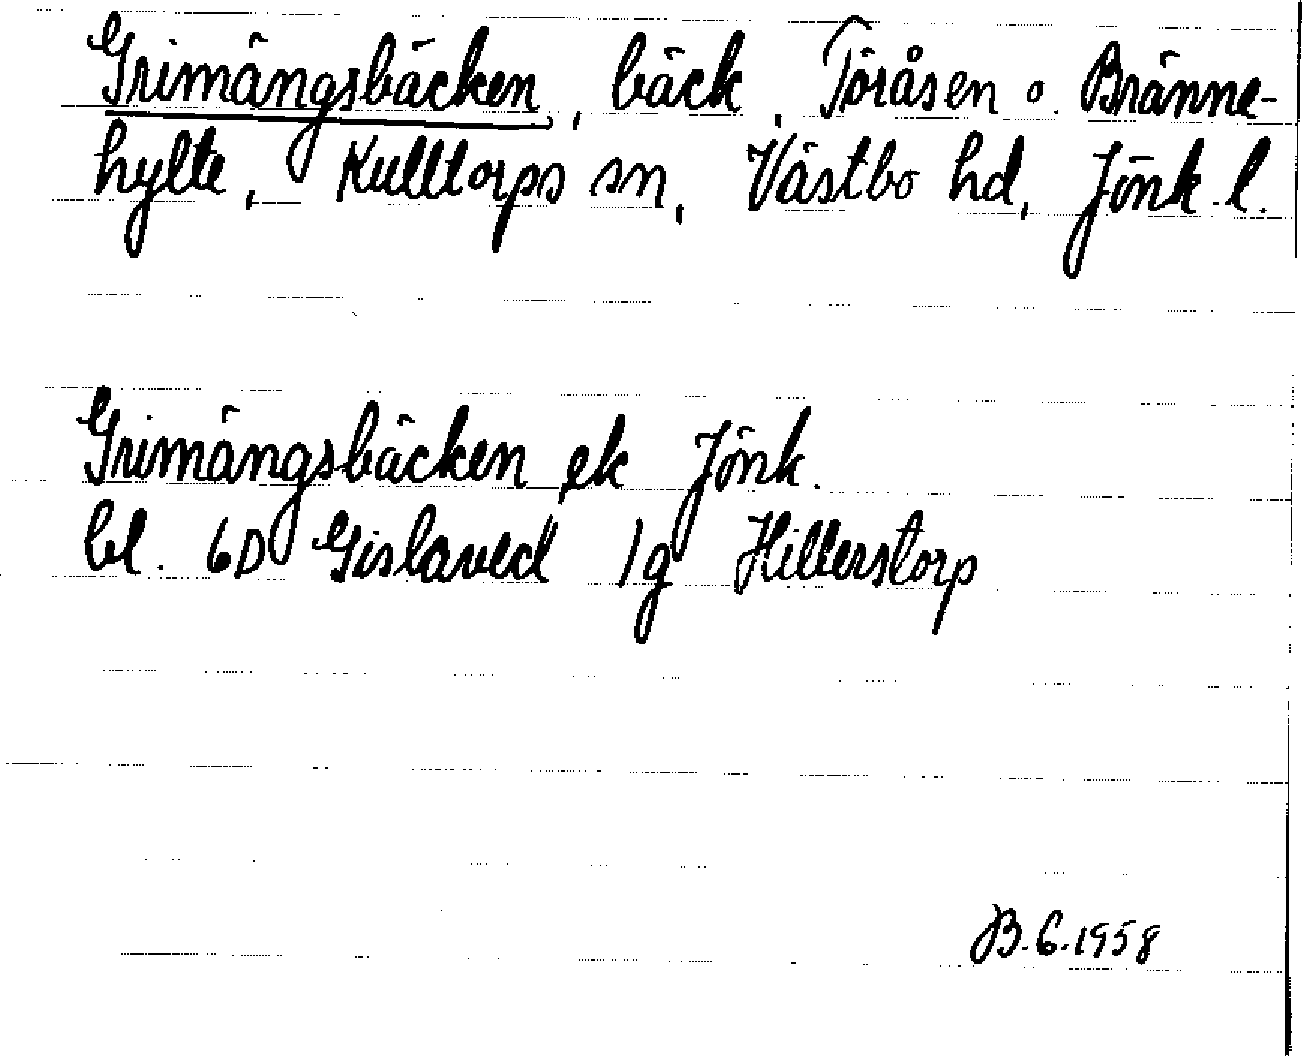 Grimängsbäcken, bäck, Töråsen o. Bränne-
hylte, Kulltorps sn, Västbo hd, Jönk. l.
Grimängsbäcken ek Jönk.
bl. 6D Gislaved 1g Hillerstorp
B.G. 1958